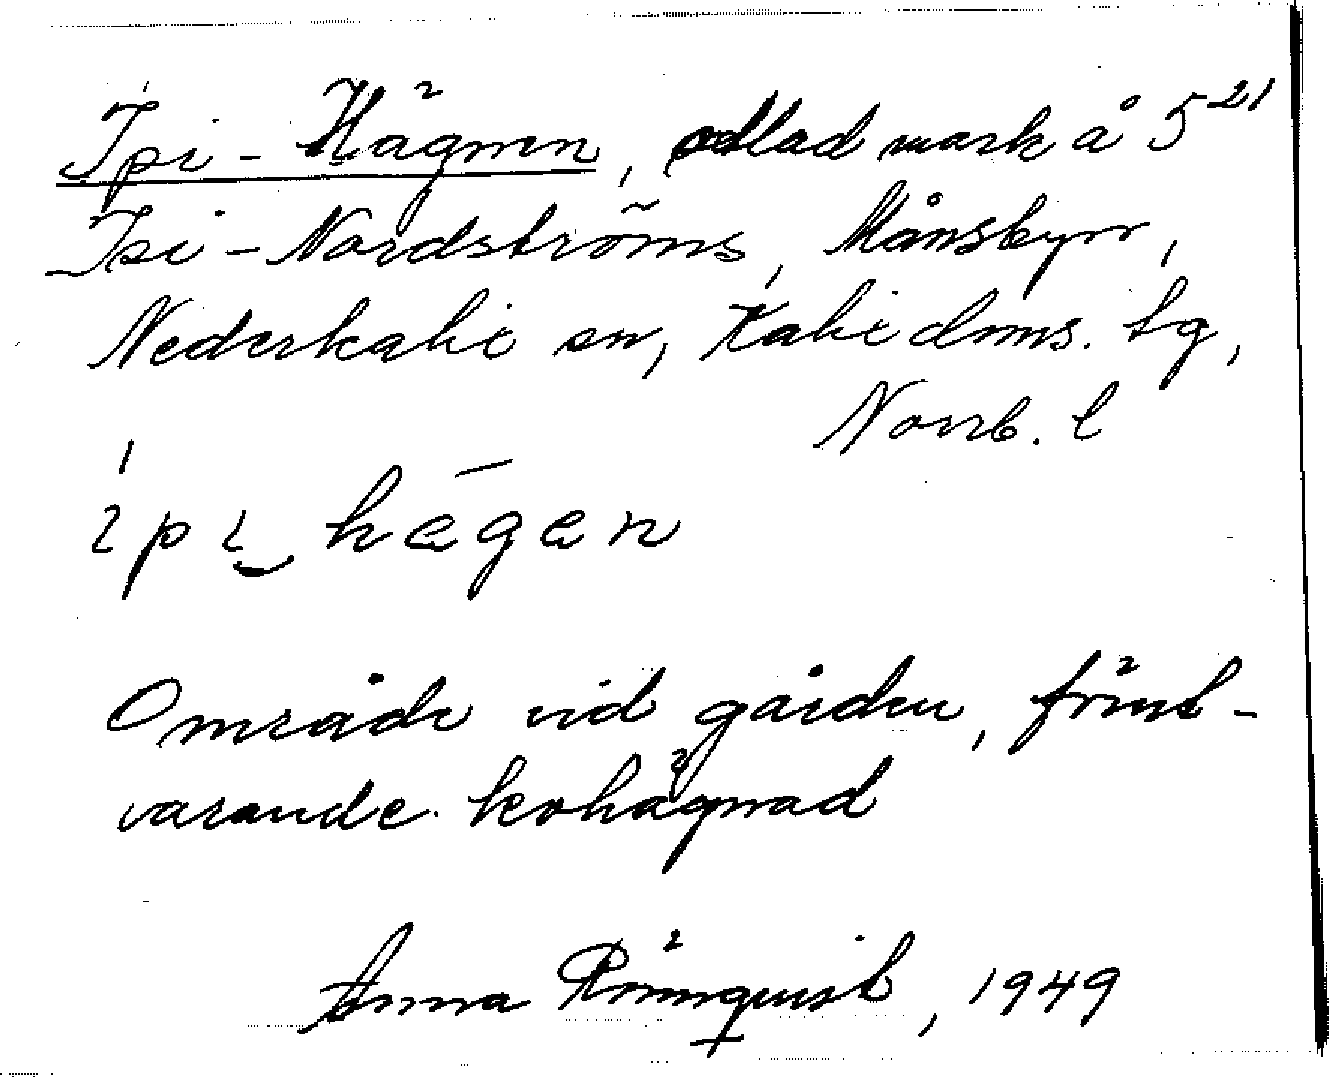 Ipi-Hägnen, odlad mark å 5²¹
Ipi-Nordströms, Månsbyn,
Nederkalix sn, Kalix doms. tg,
Norrb. l
ipi hägen
Område vid gården, först-
varande kohägnad
Anna Rönnquist, 1949